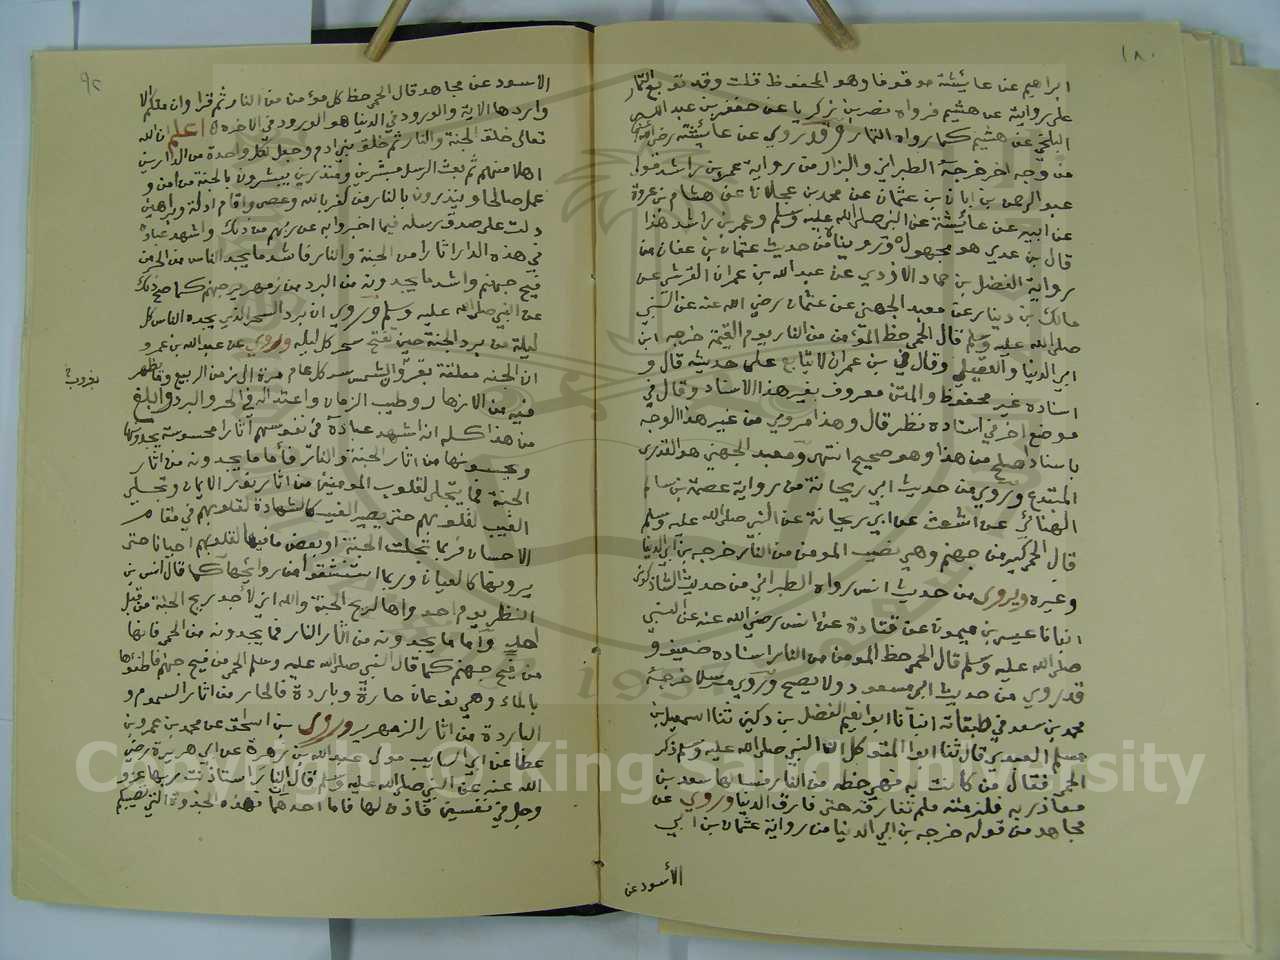 ١٨٠
ابراهيم عن عايشة موقوفا وهو المحفوظ قلت وقد توبع التمار
على روايته عن هشيم فرواه نصر بن زكريا عن جعفر بن عبد الله
البلخي عن هشيم كما رواه التمار وقد روي عن عايشة رضي الله عنها
من وجه اخر خرجه الطبراني والبزار من رواية عمر بن راشد مولى
عبد الرحمن بن ابان بن عثمان عن محمد بن عجلان عن هشام بن عروة
عن ابيه عن عائشة عن النبي صلى الله عليه وسلم وعمر بن راشد هذا
قال بن عدي هو مجهول وروينا من حديث عثمان بن عفان من
رواية الفضل بن حماد الازدي عن عبد الله بن عمران القرشي عن
مالك بن دينار عن معبد الجهني عن عثمان رضي الله عنه عن النبي
صلى الله عليه وسلم قال الحمى حظ المؤمن من النار يوم القيمة خرجه ابن
ابي الدنيا والعقيلي وقال في بن عمران لا يتابع على حديثه قال و
اسناده غير محفوظ والمتن معروف بغير هذا الاسناد وقال في
موضع اخر في اسناده نظر قال وهذا مروي من غير هذا الوجه
باسناد اصلح من هذا وهو صحيح انتهى ومعبد الجهني هو القدري
المبتدع وروي من حديث ابي ريحانة من رواية عصمة بن سالم
الهنائي عن اشعث عن ابي ريحانة عن النبي صلى الله عليه وسلم
قال الحمى كير من جهنم وهي نصيب المومن من النار خرجه بن ابي الدنيا
وغيره ويروى من حديث انس رواه الطبراني من حديث الشاذكوني
انبانا عيسى بن ميمون عن قتادة عن انس رضي الله عنه عن النبي
صلى الله عليه وسلم قال الحمى حظ المومن من النار اسناده ضعيف و
قد روي من حديث ابي مسعود ولا يصح وروي مرسلا خرجه
محمد بن سعد في طبقاته انبانا ابو نعيم الفضل بن دكين ثنا اسمعيل بن
مسلم العبدي قال ثنا ابو المتوكل ان النبي صلى الله عليه وسلم ذكر
الحمى فقال من كانت به فهي حظه من النار فسالها سعد بن
معاذ ربه فلزمته فلم تفارقه حتى فارق الدنيا وروي عن
مجاهد من قوله خرجه بن ابي الدنيا من رواية عثمان بن ابي
الأسود عن
٩٢
الاسود عن مجاهد قال الحمى حظ كل مؤمن من النار ثم قرا وان منكم الا
واردها الاية والورود في الدنيا هو الورود في الاخرة اعلم ان الله
تعالى خلق الجنة والنار ثم خلق بني ادم وجعل لكل واحدة من الدارين
اهلا منهم ثم بعث الرسل مبشرين ومنذرين يبشرون بالجنة من امن و
عمل صالحا وينذرون بالنار من كفر بالله وعصى واقام ادلة وبراهين
دلت على صدق رسله فيما اخبروا به عن ربهم من ذلك واشهد عباده
في هذه الدار اثارا من الجنة والنار فاشد ما يجد الناس من الحر من
فيح جهنم واشد ما يجدونه من البرد من زمهرير جهنم كما صح ذلك
عن النبي صلى الله عليه وسلم وروي ان برد السحر الذي يجده الناس كل
ليلة من برد الجنة حين تفتح سحر كل ليلة وروي عن عبد الله بن عمرو
ان الجنة معلقة بقرون الشمس كل عام مرة الى زمن الربيع وما ظهر
فيه من الازهار وطيب الزمان واعتداله في الحر والبرد وابلغ
من هذا كله انه اشهد عباده في نفوسهم آثارا محسوسة يجدونها
ويحسونها من اثار الجنة والنار فأما ما يجدونه من اثار
الجنة فما يتجلى لقلوب المومنين من اثار نور الايمان وتجلي
الغيب لقلوبهم حتى يصير الغيب كالشهادة لقلوبهم في مقام
الاحسان فربما تجلت الجنة او بعض ما فيها لقلوبهم احيانا حتى
يرونها كالعيان وربما استنشقوا من روائحها كما قال انس بن
النظر يوم احد واها لريح الجنة والله اني لاجد ريح الجنة من قبل
احد واما ما يجدونه من اثار النار فما يجدونه من الحمى فانها
من فيح جهنم كما قال النبي صلى الله عليه وسلم الحمى من فيح جهنم فاطفئوها
بالماء وهي نوعان حارة وباردة فالحار من اثار السموم و
الباردة من اثار الزمهرير وروى بن اسحق عن محمد بن عمرو بن
عطا عن ابي سايب مولى عبد الله بن زهرة عن ابي هريرة رضي
الله عنه عن النبي صلى الله عليه وسلم قال النار استاذنت ربها عز و
وجل في نفسين فاذن لها فاما احدهما فهذه الجذوة التي تصيبكم
Copyright © King Saud University